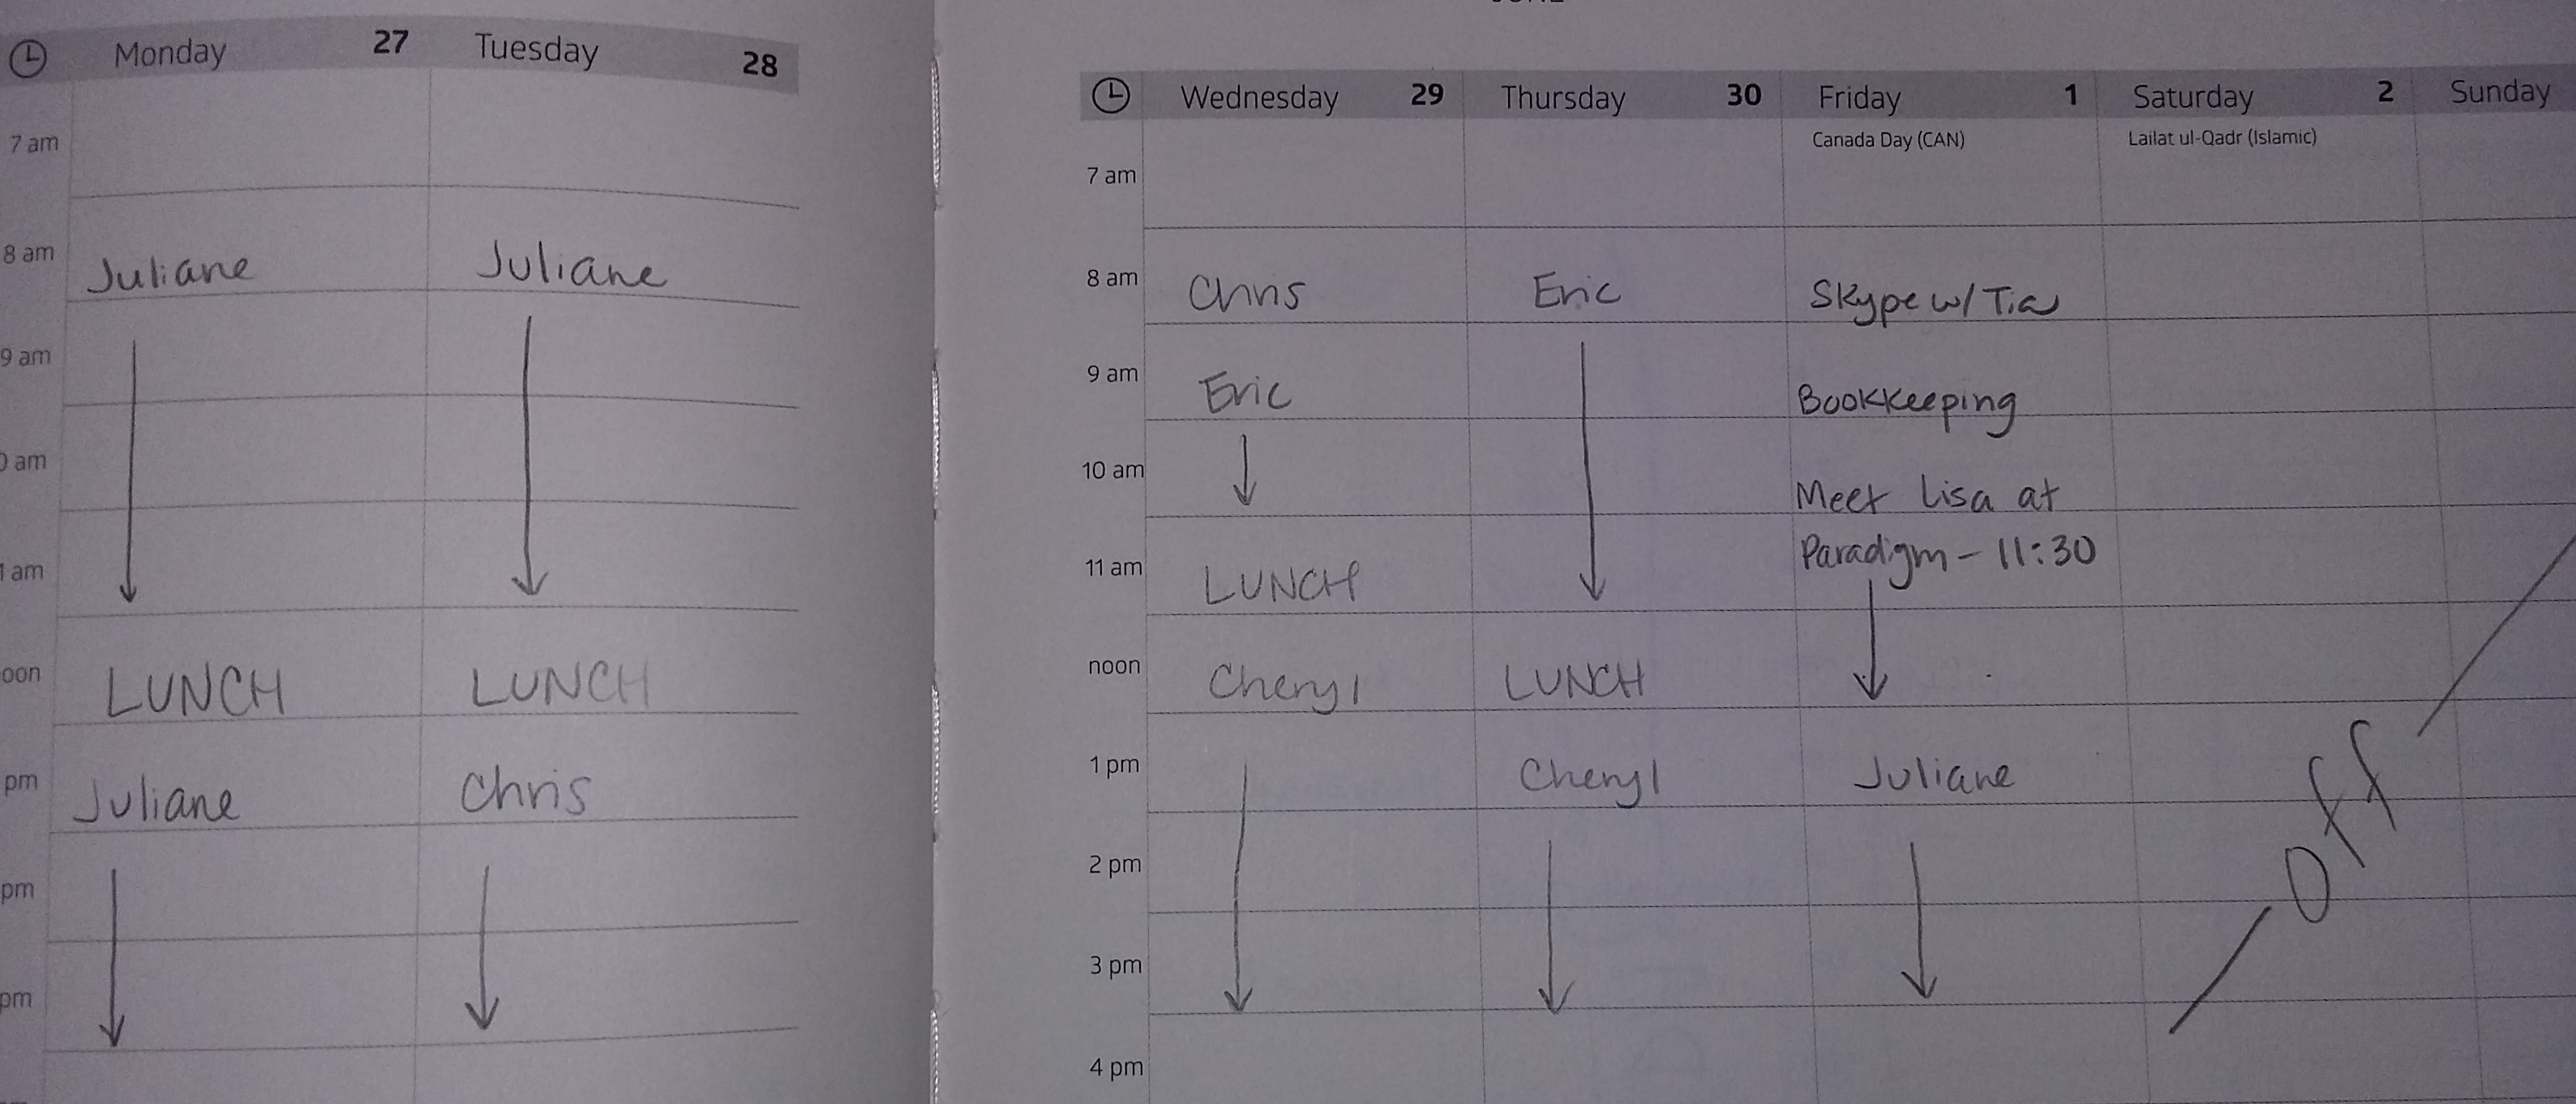 Monday 27 Tuesday 28
7 am
8 am Juliane Juliane
9 am
0 am
1 am
oon LUNCH LUNCH
pm Juliane Chris
pm
pm
Wednesday 29 Thursday 30 Friday 1 Saturday 2 Sunday
Canada Day (CAN) Lailat ul-Qadr (Islamic)
7 am
8 am Chris Eric Skype w/ Tia
9 am Eric Bookkeeping
10 am Meet Lisa at
11 am LUNCH Paradigm - 11:30
noon Cheryl LUNCH
1 pm Cheryl Juliane
2 pm off
3 pm
4 pm